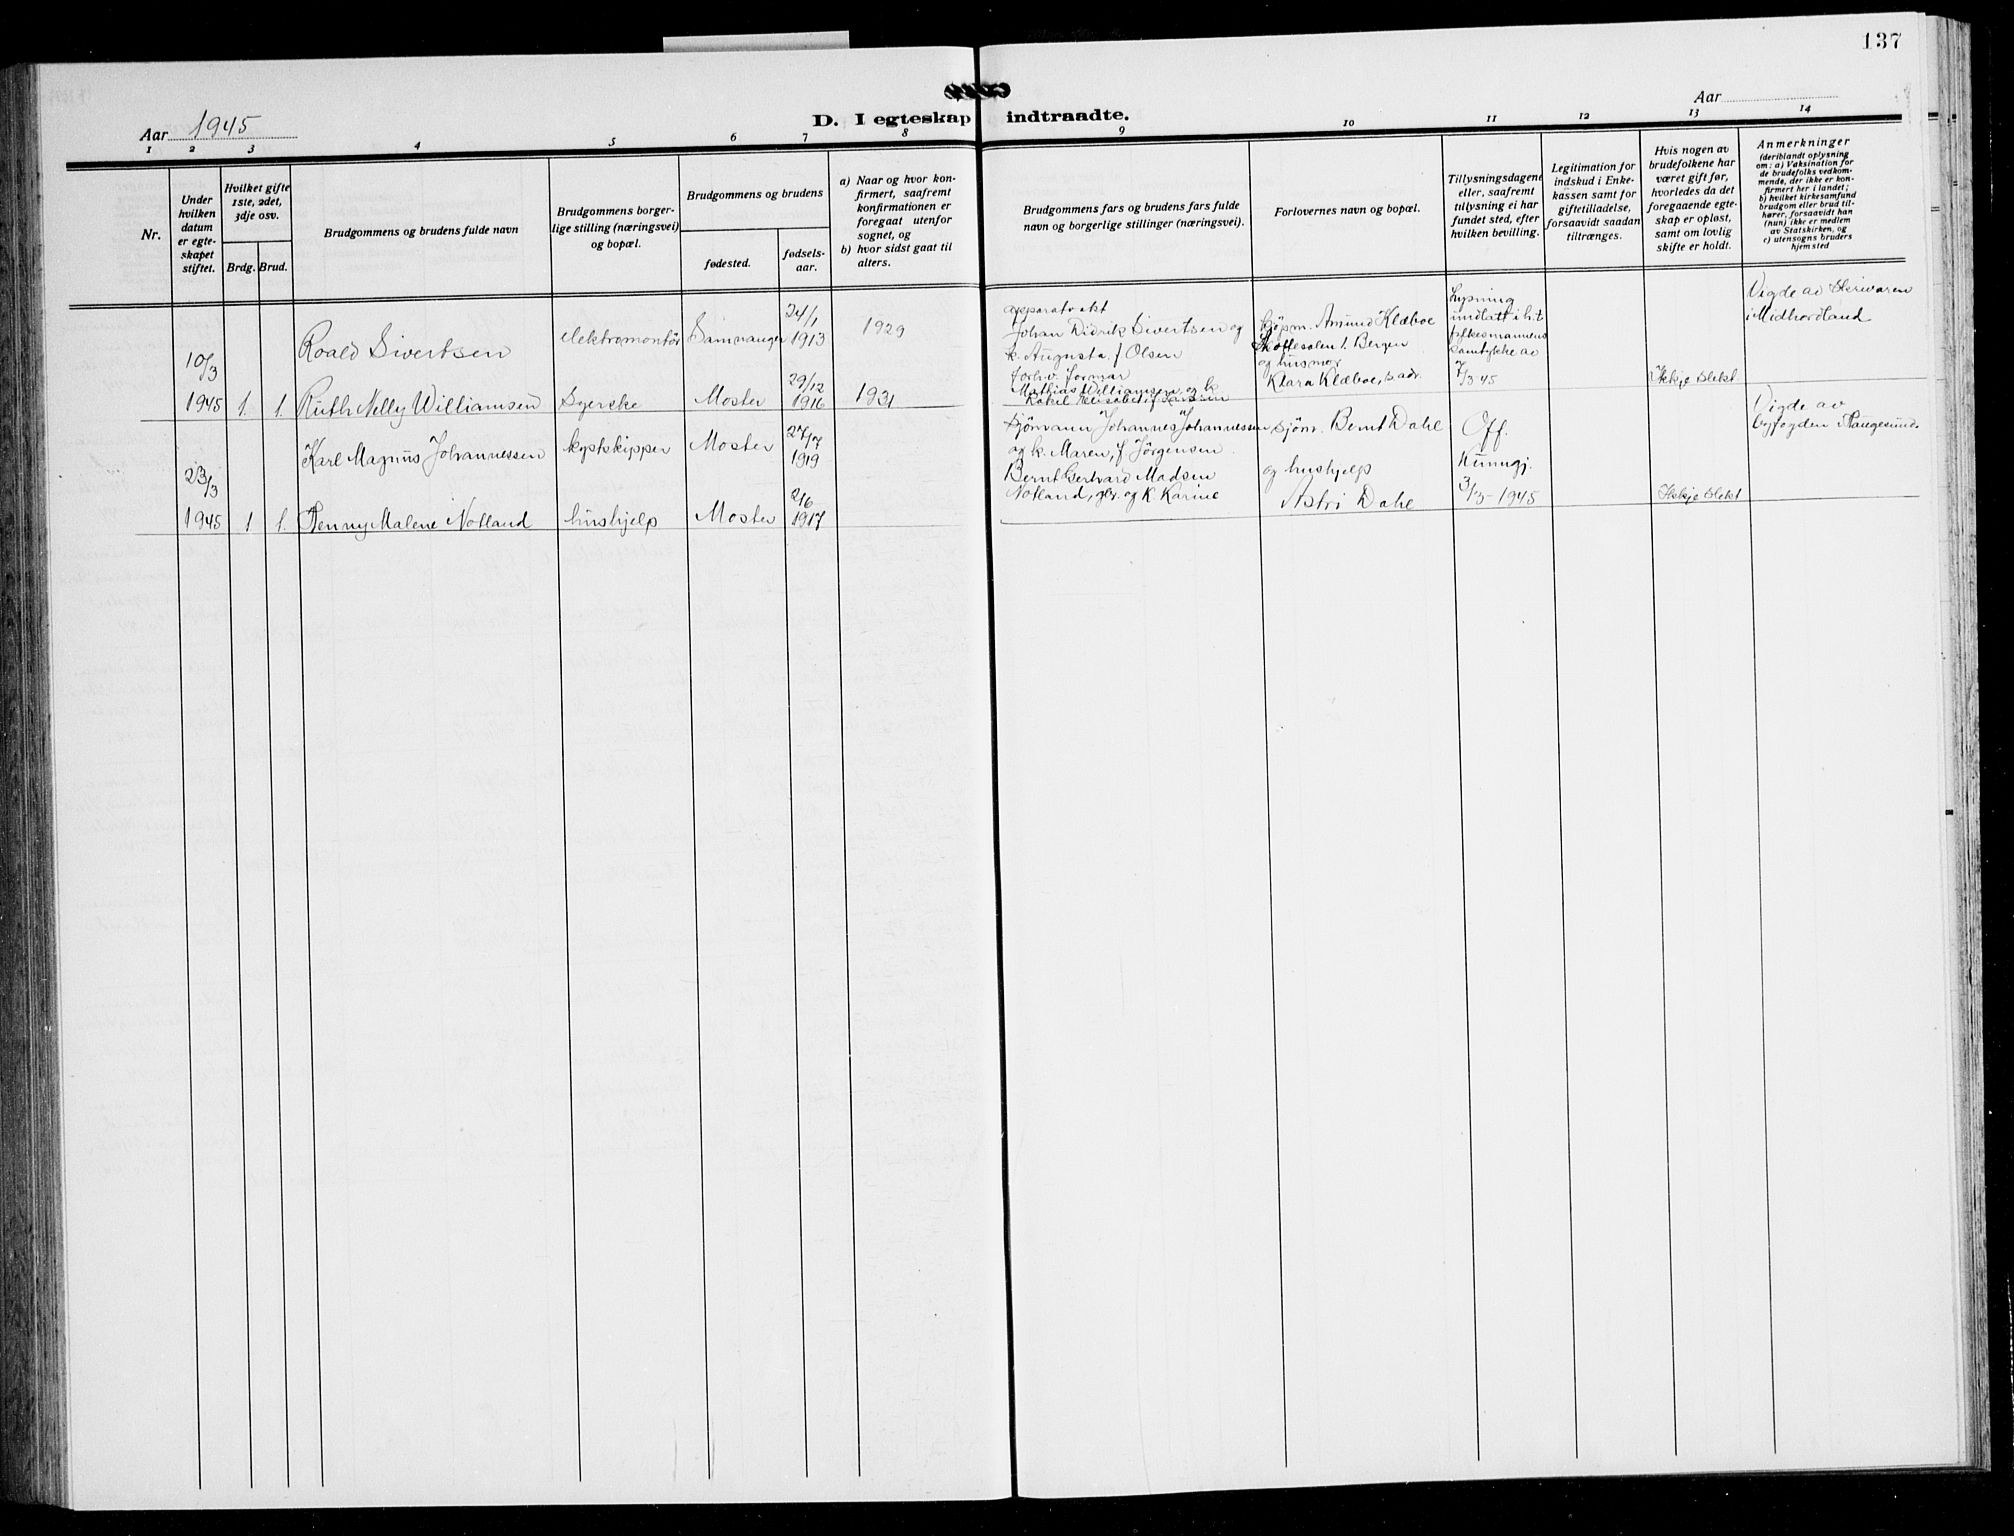 137
Aar 1945
D. I egteskap indtraadte.
Aar
1 2 3 4 5 6 7 8 9 10 11 12 13 14
Nr.
Under hvilken datum er egteskapet stiftet.
Hvilket gifte 1ste, 2det, 3dje osv.
Brdg. Brud.
Brudgommens og brudens fulde navn
Brudgommens borgerlige stilling (næringsvei) og bopæl.
Brudgommens og brudens
fødested.
fødselsaar.
a) Naar og hvor konfirmert, saafremt konfirmationen er foregaat utenfor sognet, og
b) hvor sidst gaat til alters.
Brudgommens fars og brudens fars fulde navn og borgerlige stillinger (næringsvei).
Forlovernes navn og bopæl.
Tillysningsdagene eller, saafremt tillysning ei har fundet sted, efter hvilken bevilling.
Legitimation for indskud i Enkekassen samt for giftetilladelse, forsaavidt saadan tiltrænges.
Hvis nogen av brudefolkene har været gift før, hvorledes da det foregaaende egteskap er opløst, samt om lovlig skifte er holdt.
Anmerkninger
(deriblandt oplysning om: a) Vaksination for de brudefolks vedkommende, der ikke er konfirmert her i landet; b) hvilket kirkesamfund brudgom eller brud tilhører, forsaavidt han (hun) ikke er medlem av Statskirken, og c) utensogns bruders hjemsted
10/3
1945 1. 1.
Roald Sivertsen
elektromontör
Samnanger
24/1
1913
1929
apparatvakt
Johan Didrik Sivertsen og
k. Augusta f Olsen
Kjøpm. Amund Klæboe
Bergen
og husmor
Klara Klæboe, s. adr.
Lysning
undlatt i h.t
fylkesmannens
samtykke av
7/3 45
Vigde av Skrivaren
i Midhordland
Ruth Nelly Williamsen
Syerske
Moster
29/12
1916
1931
forhv. formar
Mathias Williamsen og k.
Rakil Elisabet, f Larsen
Ikkje slekt
23/3
1945 1 1.
Karl Magnus Johannessen
kystskipper
Moster
27/7
1919
sjömann Johannes Johannessen
og k. Maren, f Jörgensen
sjöm. Bernt Dahl
og hushjelp
Astri Dahl
Off.
Kunngj.
3/3-1945
Vigde av
byfogden i Haugesund.
Penny Malene Notland
hushjelp
Moster
2/6
1917
Bernt Gertvard Madsen
Notland, gbr. og k. Karine
Ikkje slekt